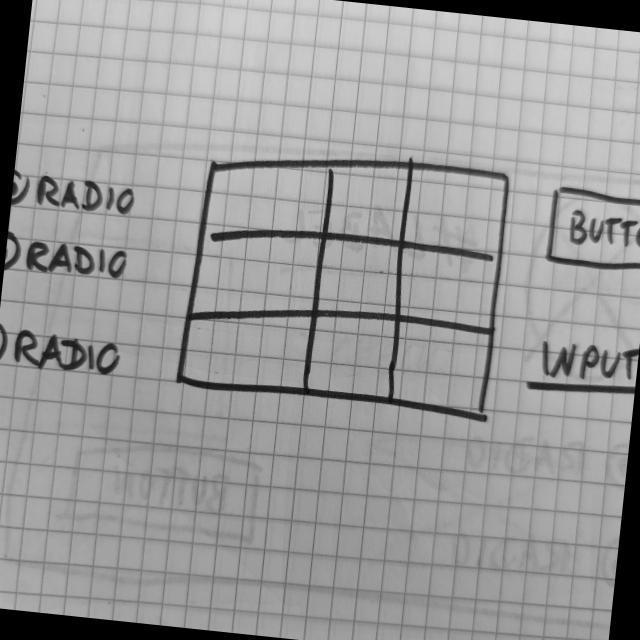 RADIO
RADIO
RADIO
BUTTO
INPUT